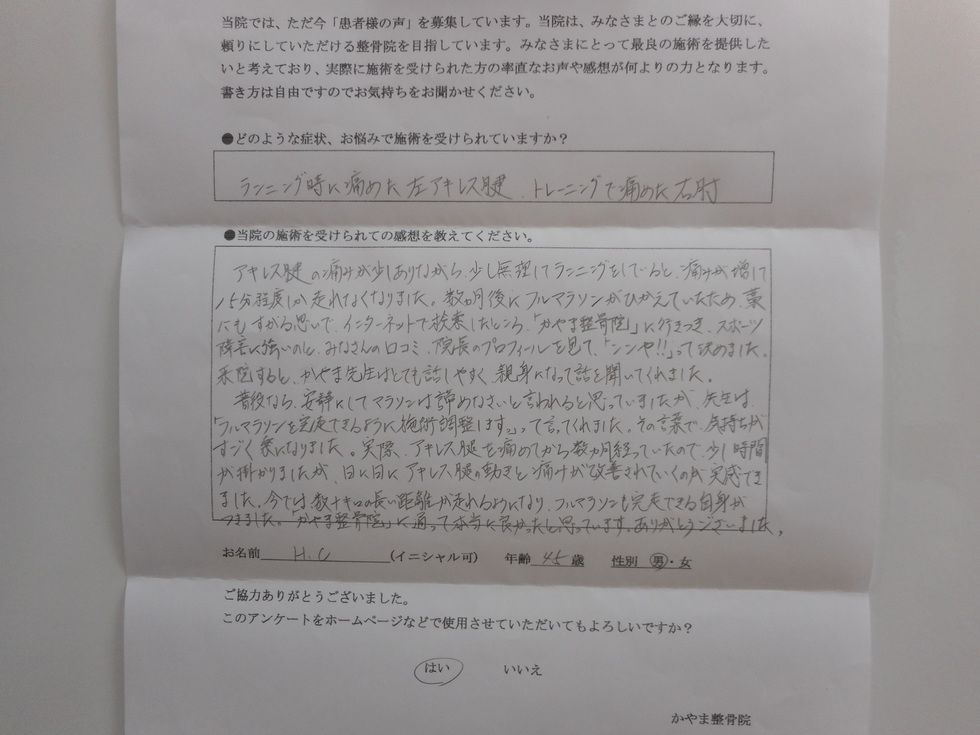 当院では、ただ今「患者様の声」を募集しています。当院は、みなさまとのご縁を大切に、
頼りにしていただける整骨院を目指しています。みなさまにとって最良の施術を提供した
いと考えており、実際に施術を受けられた方の率直なお声や感想が何よりの力となります。
書き方は自由ですのでお気持ちをお聞かせください。
●どのような症状、お悩みで施術を受けられていますか？
ランニング時に痛めた左アキレス腱、トレーニングで痛めた右肘
●当院の施術を受けられての感想を教えてください。
アキレス腱の痛みが少しありながら、少し無理してランニングをしていると、痛みが増して
15分程度しか走れなくなりました。数カ月後にフルマラソンがひかえていたため、藁
にもすがる思いで、インターネットで検索したところ、「かやま整骨院」に行きつき、スポーツ
障害に強いのと、みなさんの口コミ、院長のプロフィールを見て、「ココや!!」って決めました。
来院すると、かやま先生はとても話しやすく、親身になって話を聞いてくれました。
普段なら、安静にしてマラソンは諦めなさいと言われると思っていましたが、先生は、
「フルマラソンを完走できるように施術調整します。」って言ってくれました。その言葉で、気持ちが
すごく楽になりました。実際、アキレス腱を痛めてから数カ月経っていたので、少し時間
が掛かりましたが、日に日にアキレス腱の動きと痛みが改善されていくのが実感でき
ました。今では数十キロの長い距離が走れるようになり、フルマラソンも完走できる自身が
つきました。「かやま整骨院」に通って本当に良かったと思っています。ありがとうございました。
お名前 H.C (イニシャル可) 年齢 45 歳 性別 男・女
ご協力ありがとうございました。
このアンケートをホームページなどで使用させていただいてもよろしいですか？
はい いいえ
かやま整骨院